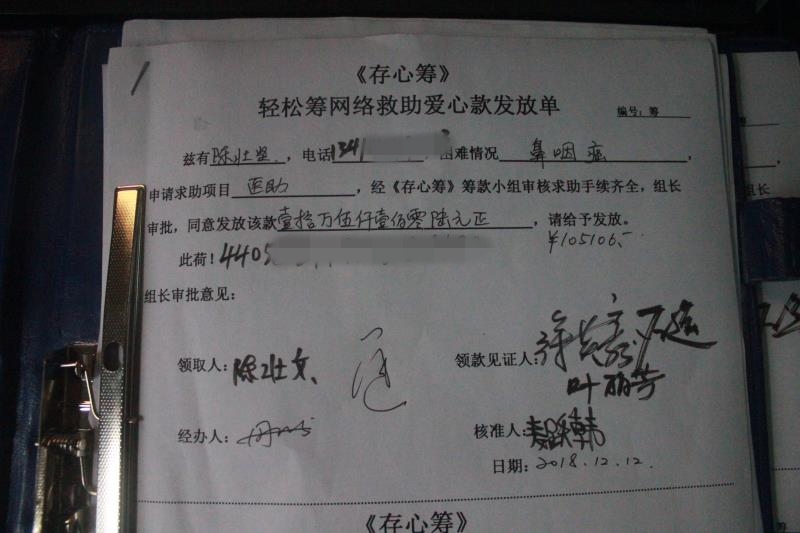 《存心筹》
轻松筹网络救助爱心款发放单
编号：筹
兹有陈壮坚，电话134，困难情况 鼻咽癌，
申请求助项目 医助，经《存心筹》筹款小组审核求助手续齐全，组长
审批，同意发放该款壹拾万伍仟壹佰零陆元正，请给予发放。
¥105106.-
此荷！4405
组长审批意见：
领取人：陈壮文
领款见证人：
叶丽芳
经办人：
核准人：
日期：2018.12.12.
《存心筹》